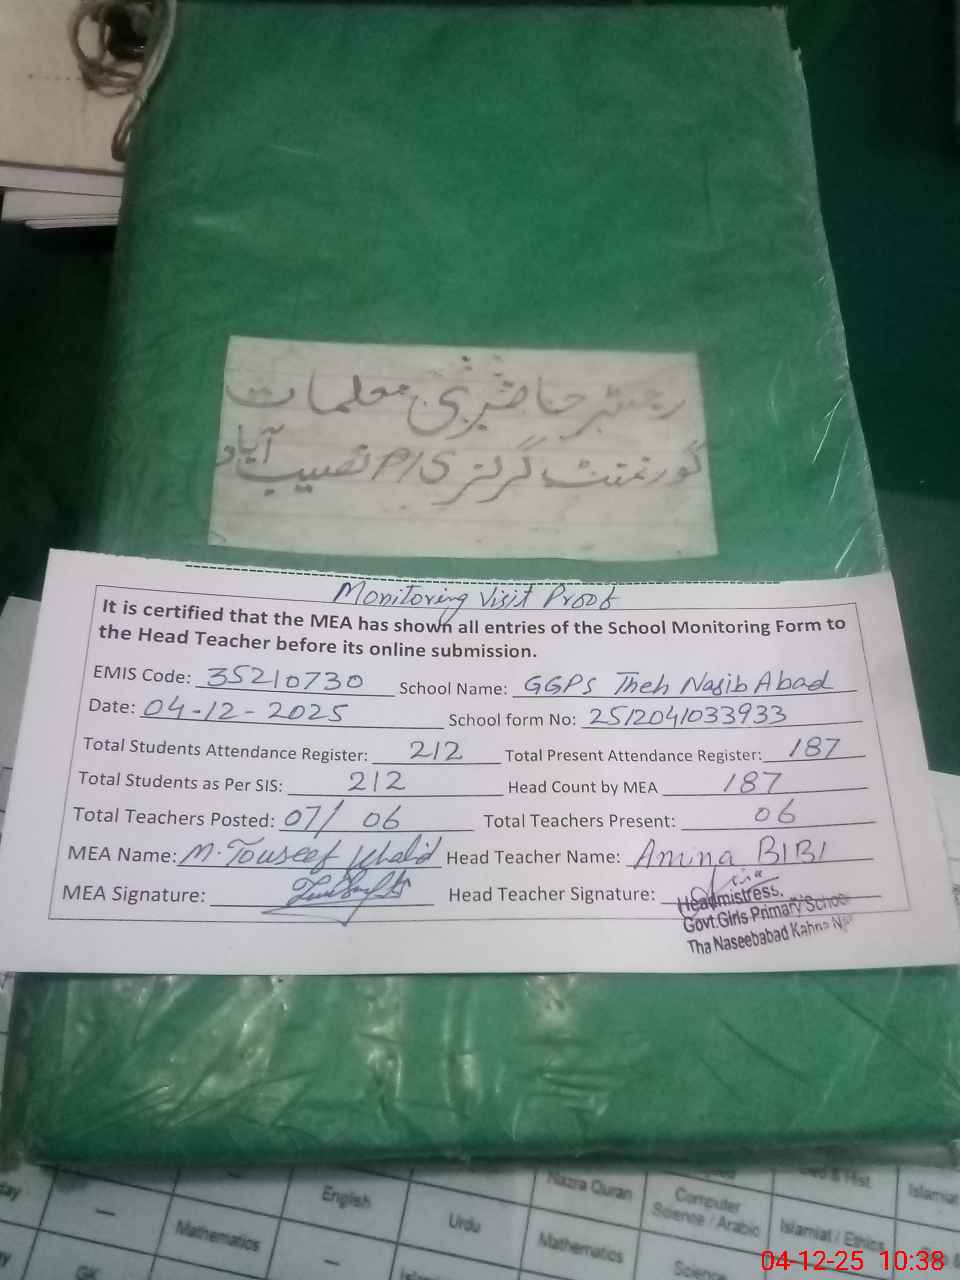 رجسٹر حاضری معلمات
گورنمنٹ گرلز P/S نصیب آباد
Monitoring Visit Proof
It is certified that the MEA has shown all entries of the School Monitoring Form to
the Head Teacher before its online submission.
EMIS Code: 35210730 School Name: GGPS Theh Nasib Abad
Date: 04-12-2025 School form No: 2512041033933
Total Students Attendance Register: 212 Total Present Attendance Register: 187
Total Students as Per SIS: 212 Head Count by MEA 187
Total Teachers Posted: 07/ 06 Total Teachers Present: 06
MEA Name: M. Touseef Khalid Head Teacher Name: Amna BIBI
MEA Signature: Head Teacher Signature:
Headmistress.
Govt.Girls Primary School
Tha Naseebabad Kahna
English Nazra Quran Computer Science / Arabic & Hist.
Mathematics Urdu Mathematics Islamiat / Ethics
GK Science
04-12-25 10:38